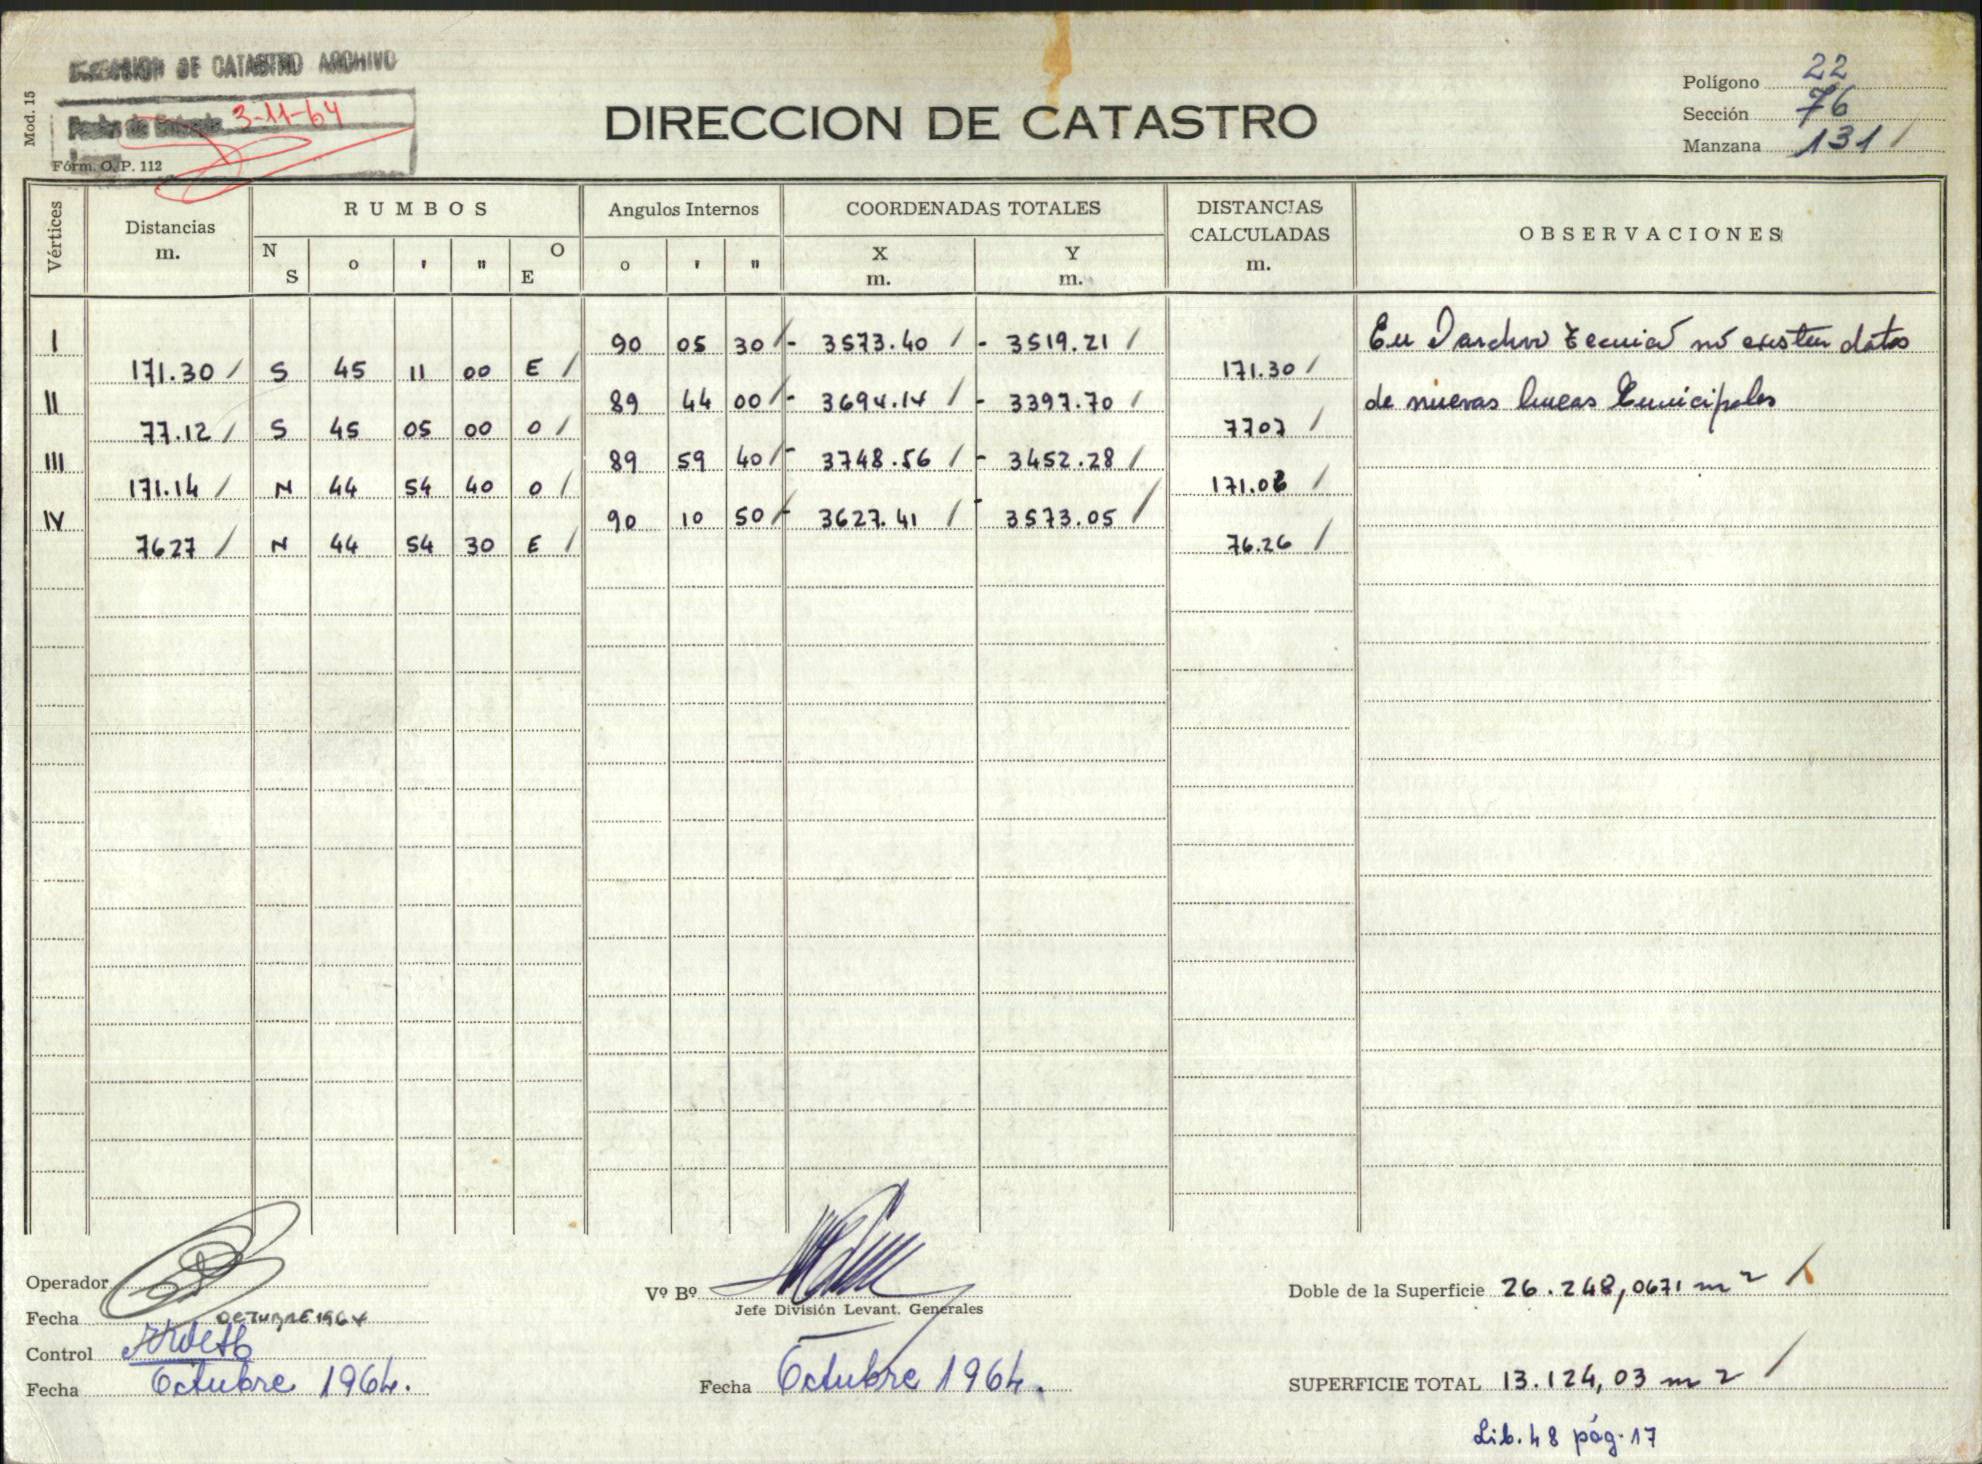 DIRECCION DE CATASTRO ARCHIVO
Fecha de Entrada 3-11-64
Mod. 15
Fórm. O. P. 112
DIRECCION DE CATASTRO
Polígono 22
Sección 76
Manzana 131 /
Vértices
Distancias
m.
RUMBOS
N
S
o ' "
O
E
Angulos Internos
o ' "
COORDENADAS TOTALES
X
m.
Y
m.
DISTANCIAS
CALCULADAS
m.
OBSERVACIONES
I 90 05 30 / - 3573.40 / - 3519.21 /
171.30 / S 45 11 00 E / 171.30 /
II 89 44 00 / - 3694.14 / - 3397.70 /
77.12 / S 45 05 00 O / 7707 /
III 89 59 40 / - 3748.56 / - 3452.28 /
171.14 / N 44 54 40 O / 171.08 /
IV 90 10 50 / - 3627.41 / - 3573.05 /
7627 / N 44 54 30 E / 76.26 /
En archivo tecnico no existen datos
de nuevas lineas Municipales
Operador
Fecha OCTUBRE 1964
Control
Fecha Octubre 1964.
Vº Bº
Jefe División Levant. Generales
Fecha Octubre 1964.
Doble de la Superficie 26.248,0671 m2 /
SUPERFICIE TOTAL 13.124,03 m2 /
Lib. 48 pág. 17